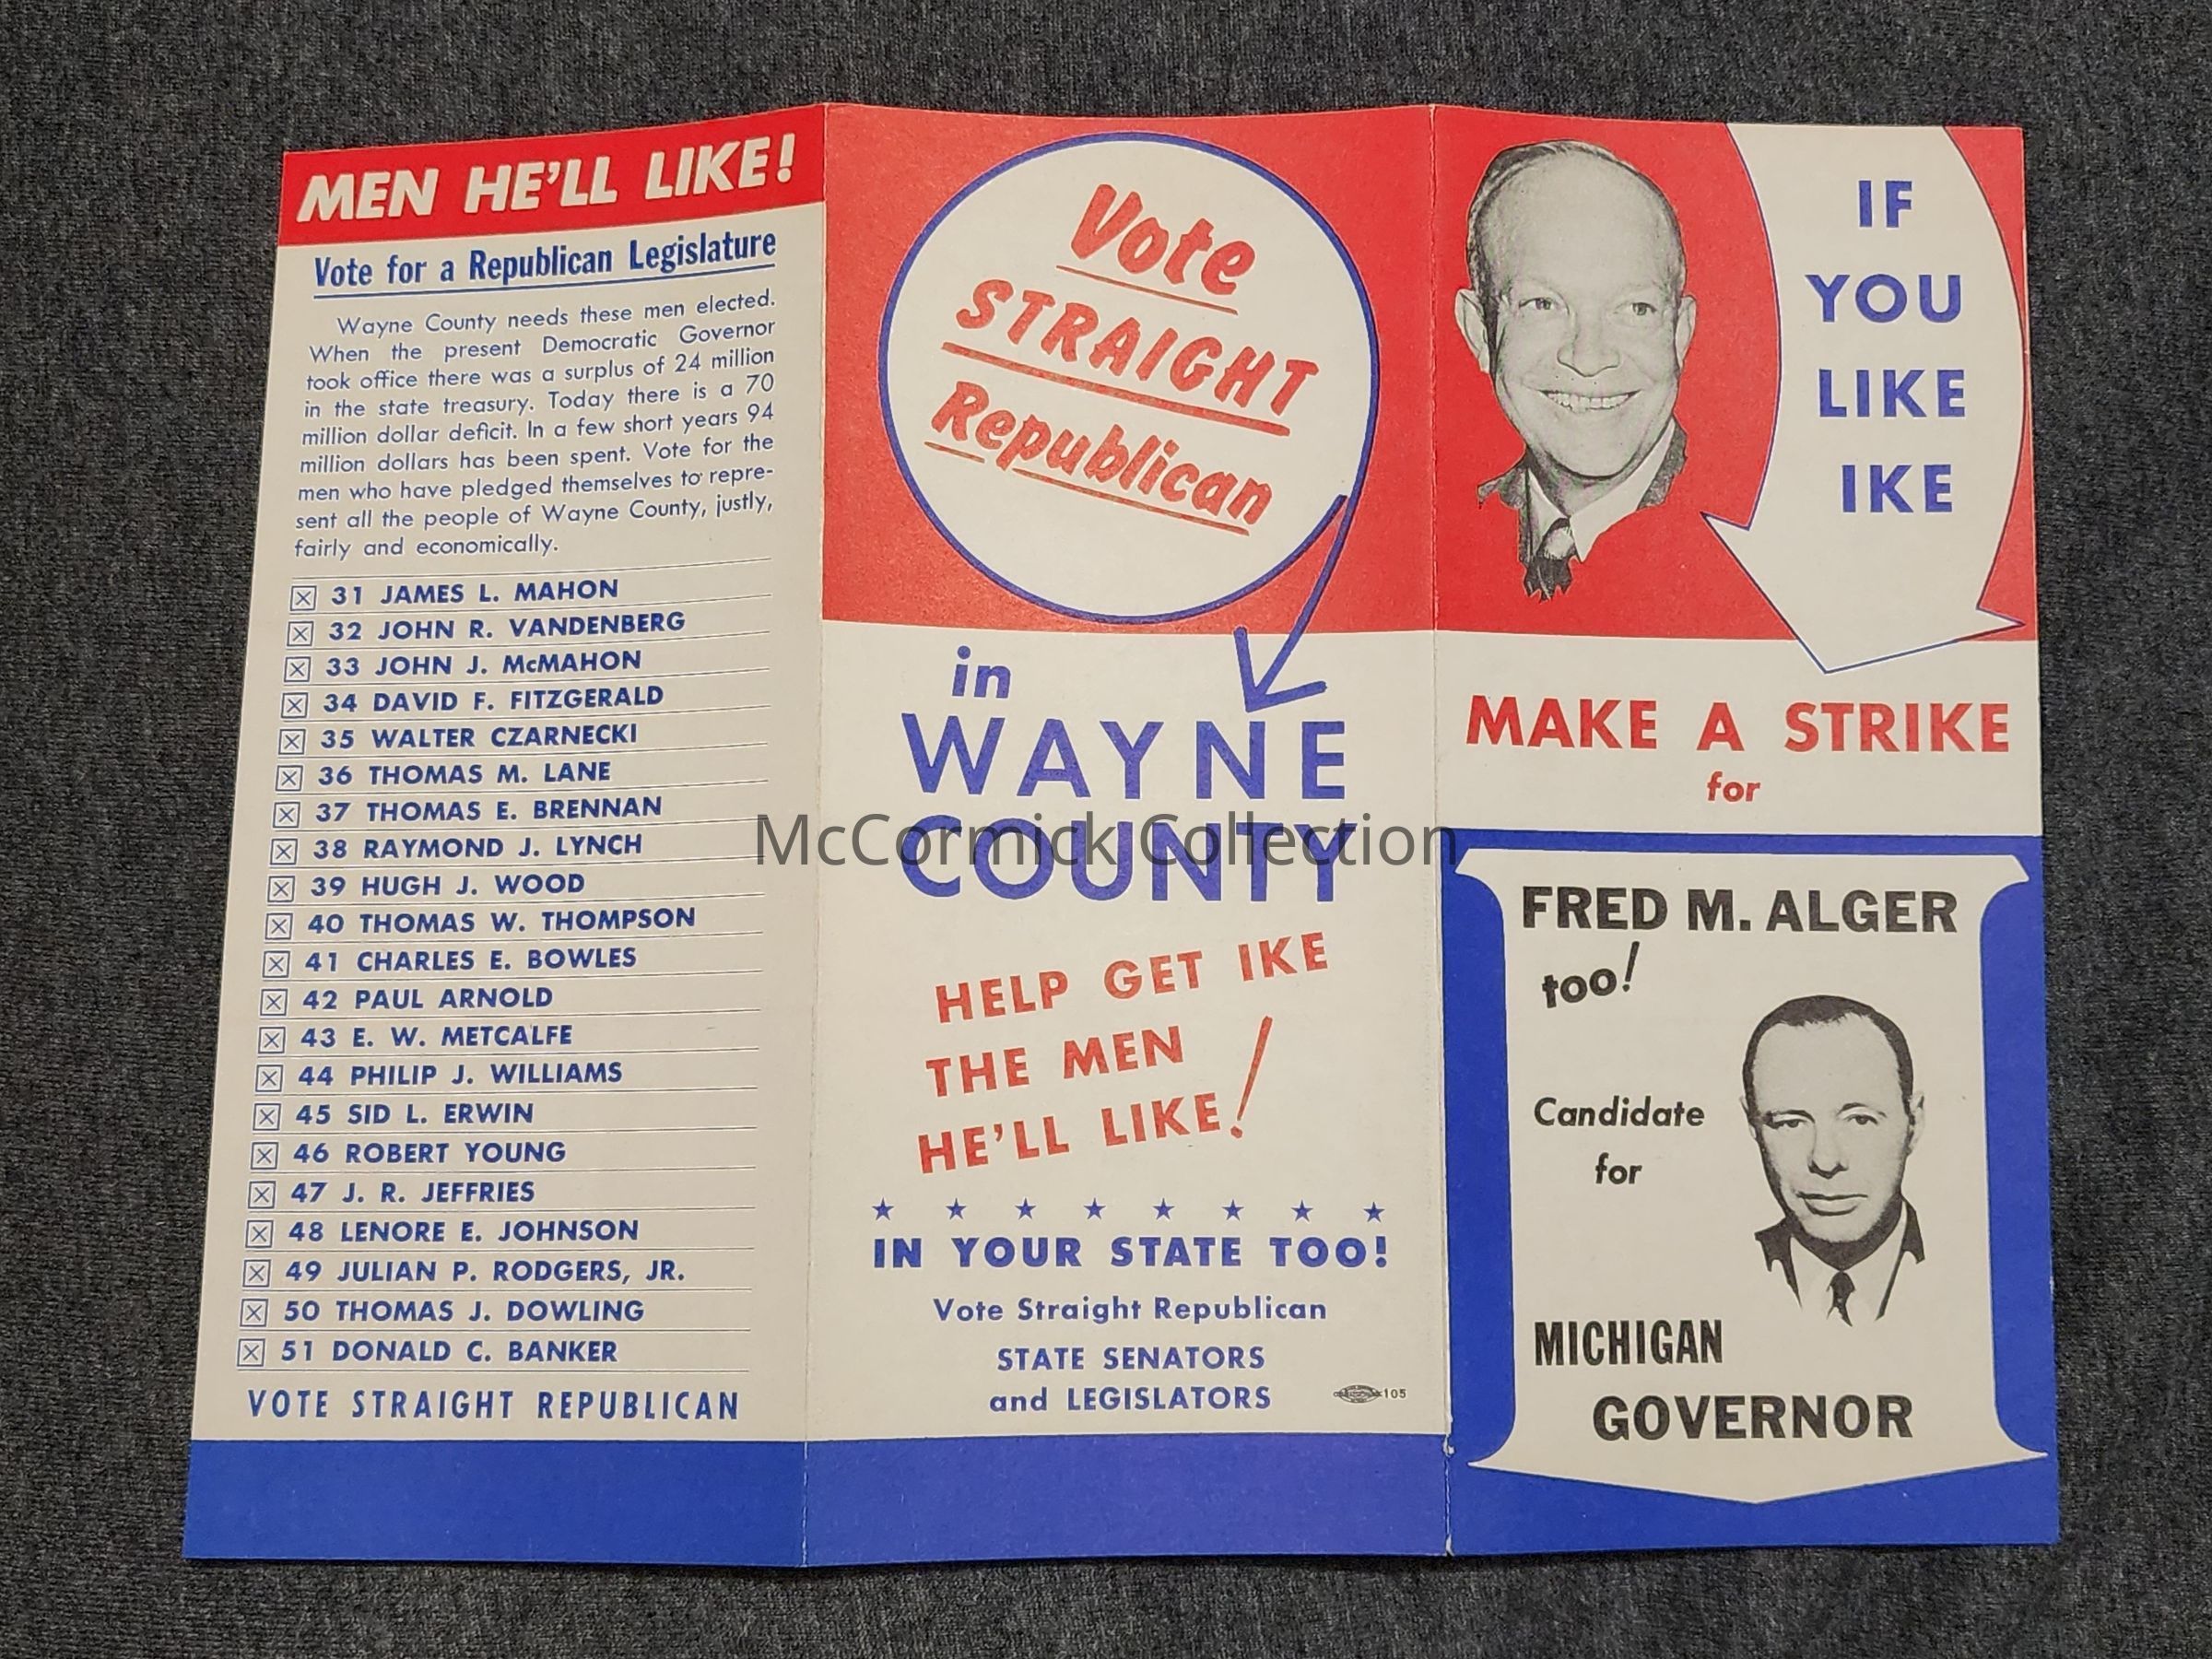 MEN HE'LL LIKE!
Vote for a Republican Legislature
Wayne County needs these men elected.
When the present Democratic Governor
took office there was a surplus of 24 million
in the state treasury. Today there is a 70
million dollar deficit. In a few short years 94
million dollars has been spent. Vote for the
men who have pledged themselves to repre-
sent all the people of Wayne County, justly,
fairly and economically.
31 JAMES L. MAHON
32 JOHN R. VANDENBERG
33 JOHN J. McMAHON
34 DAVID F. FITZGERALD
35 WALTER CZARNECKI
36 THOMAS M. LANE
37 THOMAS E. BRENNAN
38 RAYMOND J. LYNCH
39 HUGH J. WOOD
40 THOMAS W. THOMPSON
41 CHARLES E. BOWLES
42 PAUL ARNOLD
43 E. W. METCALFE
44 PHILIP J. WILLIAMS
45 SID L. ERWIN
46 ROBERT YOUNG
47 J. R. JEFFRIES
48 LENORE E. JOHNSON
49 JULIAN P. RODGERS, JR.
50 THOMAS J. DOWLING
51 DONALD C. BANKER
VOTE STRAIGHT REPUBLICAN
Vote
STRAIGHT
Republican
in
WAYNE
COUNTY
McCormick Collection
HELP GET IKE
THE MEN
HE'LL LIKE!
IN YOUR STATE TOO!
Vote Straight Republican
STATE SENATORS
and LEGISLATORS
105
IF
YOU
LIKE
IKE
MAKE A STRIKE
for
FRED M. ALGER
too!
Candidate
for
MICHIGAN
GOVERNOR